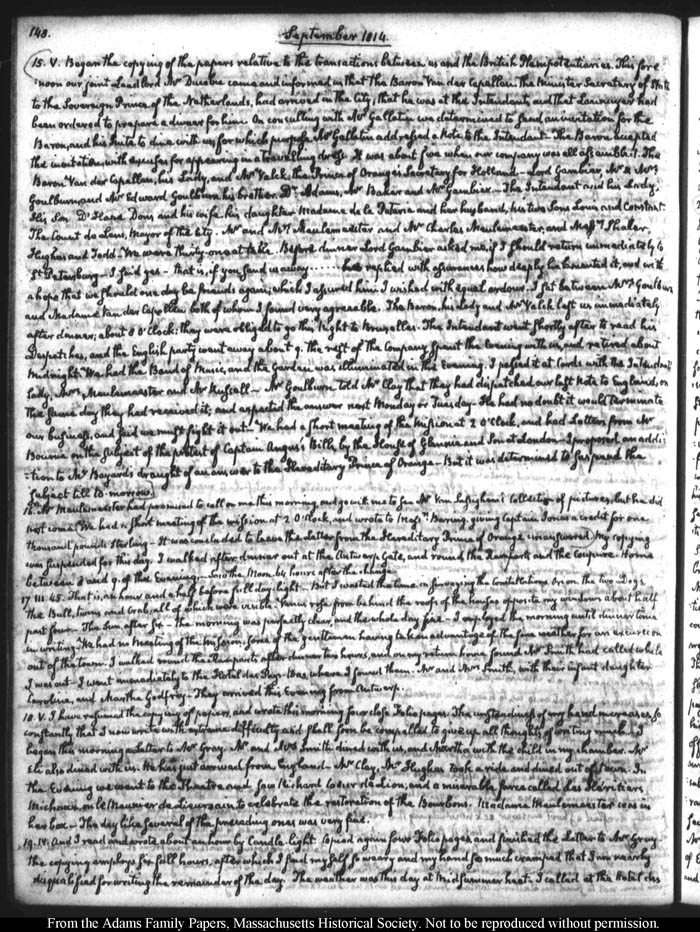 148.
September 1814.
15. V. Began the copying of the papers relative to the transactions between us and the British Plenipotentiaries. This fore-
:noon our joint Landlord Mr Ducobie came and informed us that the Baron Van der Capellen the Minister Secretary of State
to the Sovereign Prince of the Netherlands, had arrived in the City; that he was at the Intendant's and that had
been ordered to prepare a dinner for him. On consulting with Mr Gallatin we determined to send an invitation for the
Baron, and his Suite to dine with us, for which purpose Mr Gallatin addressed a Note to the Intendant. The Baron accepted
the invitation, with excuses for appearing in a travelling dress. It was about five when our company was all assembled. The
Baron Van der Capellen, his Lady, and Mr Valck, the Prince of Orange's Secretary for Holland—Lord Gambier, Mr & Mrs
Goulburn and Mr Edward Goulburn his brother. Dr Adams, Mr Baker and Mr Gambier—The Intendant and his Lady.
His Son D'Hane Dons and his wife, his daughter Madame de la and her husband, his two Sons Louis and Constant.
The Count de Lens, Mayor of the City. Mr and Mrs Meulemeester and Mr Charles Meulemeester, and Messrs Shaler,
Hughes and Todd. We were thirty-one at table. Before dinner Lord Gambier asked me, if I should return immediately to
St Petersburg. I said yes—that is, if you send us away...... he replied with assurances how deeply he lamented it, and with
a hope that we should one day be friends again; which I assured him I wished with equal ardour. I sat between Mrs Goulburn
and Madame Van der Capellen both of whom I found very agreeable. The Baron, his lady and Mr Valck left us immediately
after dinner; about 8 O'Clock; they were obliged to go this Night to Bruxelles. The Intendant went shortly after to read his
Despatches, and the English party went away about 9. the rest of the Company spent the Evening with us, and retired about
Midnight. We had the Band of Music, and the Garden was illuminated in the Evening. I passed it at Cards with the Intendant's
Lady, Mrs Meulemeester and Mr Russell—Mr Goulburn told Mr Clay that they had dispatched our last Note to England, on
the same day they had received it; and expected the answer next Monday or Tuesday—He had no doubt it would terminate
our business, and said we must fight it out. We had a short meeting of the Mission at 2 O'Clock, and had Letters from Mr
Bourne on the subject of the protest of Captain Angus's Bills, by the House of and Son at London—I proposed an addi:
:tion to Mr Bayard's draught of an answer to the Hereditary Prince of Orange. But it was determined to suspend the
subject till to-morrow.
16. Mr Meulemeester had promised to call on me this morning, and go with me to see Mr Van collection of pictures, but he did
not come. We had a short meeting of the mission at 2 O'Clock, and wrote to Messrs Baring, giving Captain Jones a credit for one
thousand pounds Sterling—It was concluded to leave the letter from the Hereditary Prince of Orange unanswered. My copying
was suspended for this day. I walked after dinner out at the Antwerp Gate, and round the Ramparts and the Coupure. Home
between 8 and 9 of the Evening.—Saw the Moon, 64 hours after the change.
17. III. 45. That is, an hour and a half before full day-light—But I wasted the time in surveying the Constellations Orion the two Dogs
the Bull, twins and Crab, all of which were visible. Venus rose from behind the roofs of the houses opposite my windows about half
past four. The Sun after Six—the morning was perfectly clear, and the whole day fine—I employed the morning until dinner time
in writing. We had no Meeting of the Mission. Some of the gentlemen having taken advantage of the fine weather for an excursion
out of the town. I walked round the Ramparts after dinner two hours, and on my return home found Mr Smith had called while
I was out. I went immediately to the Hotel des Pays-Bas, where I found them. Mr and Mrs Smith, with their infant daughter
Caroline, and Martha Godfrey. They arrived this Evening from Antwerp.
18. V. I have resumed the copying of papers, and wrote this morning four close Folio pages. The unsteadiness of my hand increases so
constantly that I now write with extreme difficulty and shall soon be compelled to give up all thoughts of writing much. I
began this morning a Letter to Mr Gray. Mr and Mrs Smith dined with us, and Martha with the child in my chamber. Mr
Eli also dined with us. He has just arrived from England. Mr Clay, Mr Hughes took a ride and dined out of town. In
the Evening we went to the Theatre and saw Richard Coeur de Lion, and a miserable farce called Les Héritiers
Michau, ou le to celebrate the restoration of the Bourbons. Madame Meulemeester was in
her box—The day like several of the preceding ones was very fine.
19. IV. And I read and wrote about an hour by Candle-light. Copied again four Folio pages, and finished the Letter to Mr Gray.
the copying employs for full hours, after which I find myself so weary and my hand so much cramped that I am nearly
disqualified for writing the remainder of the day. The weather was this day at Midsummer heat. I called at the Hotel des
From the Adams Family Papers, Massachusetts Historical Society. Not to be reproduced without permission.